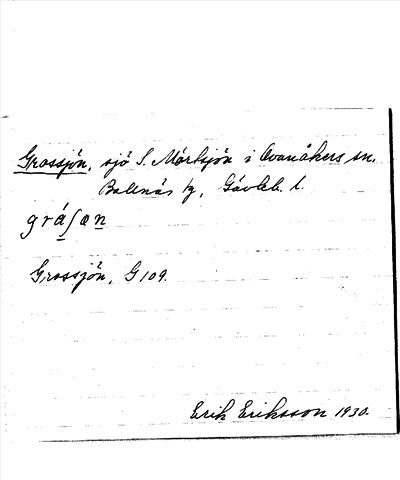 Grossjön, sjö S. Mörtsjön i Ovanåkers sn.
Bollnäs tg, Gävleb. l.
gråʃæn
Grossjön, G 109.
Erik Eriksson 1930.